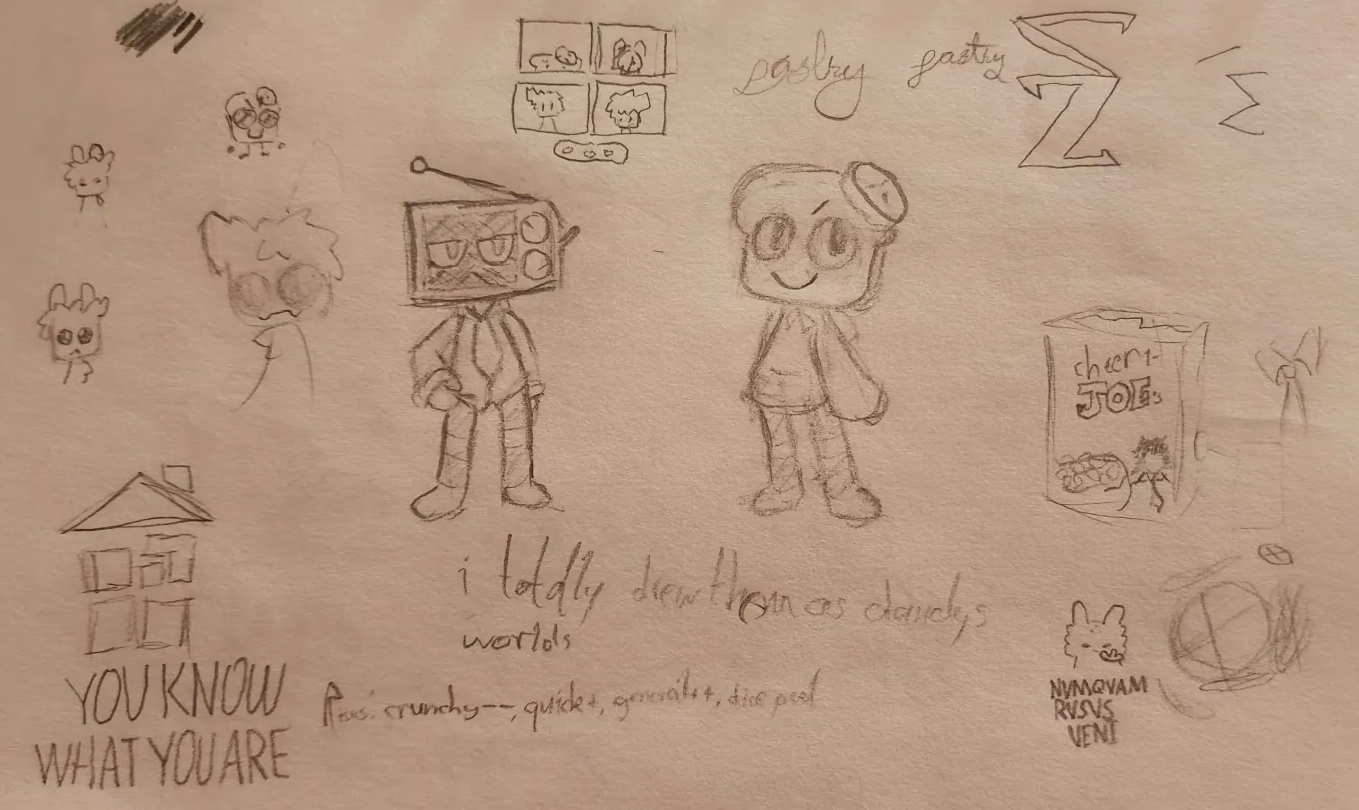 pastry pastry
cheeri-
JOEs
i totally drew them as dandys
worlds
YOU KNOW
WHAT YOU ARE
crunchy--, quick+, generalist, dice pool
NVMQVAM
RVSVS
VENI